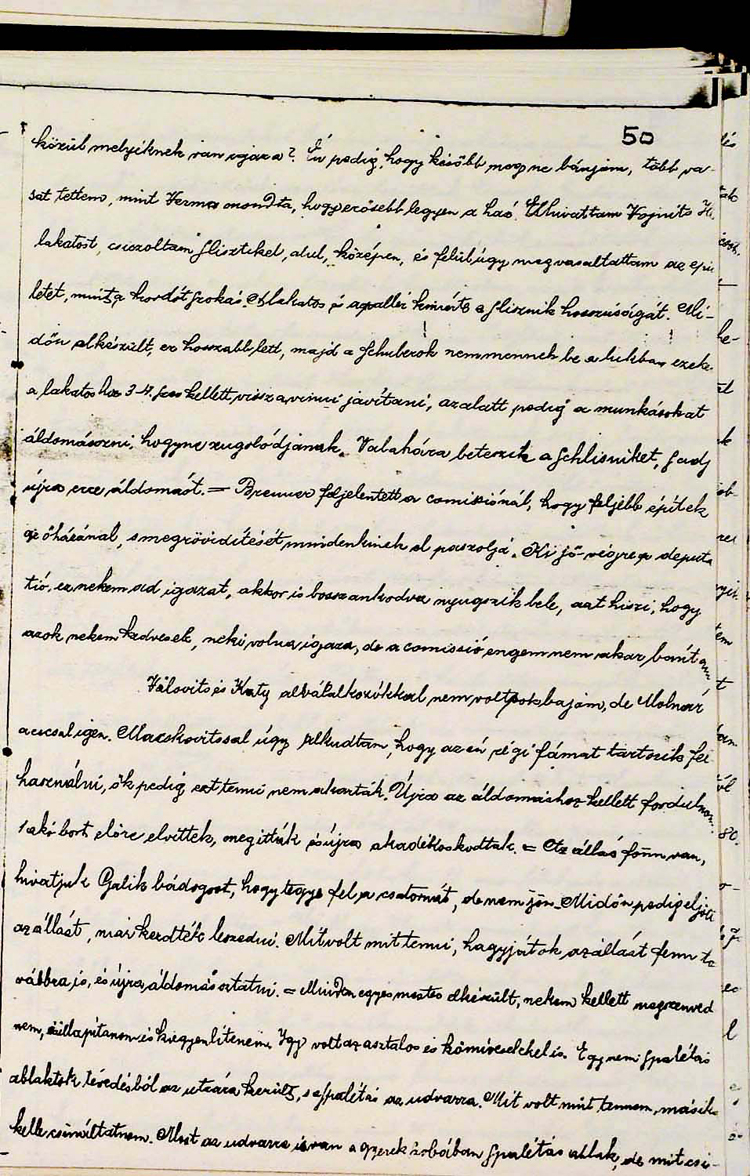 50
közül melyiknek van igaza? Én pedig, hogy később meg ne bánjam, több va-
sat tettem, mint Kerma mondta, hogy erősebb legyen a ház. Elhivattam Vojnits
lakatost, csináltam slisztiket, alul, középen, és felül úgy megvasaltattam az épü
letet, mint a hordót szokás. A lakatos és a pallér kimérte a slisznik hosszúságát. Mi-
dőn elkészült, ez hosszabb lett, majd a Schuberok nem mennek be a lukba, ezeket
a lakatoshoz 3-4szer kellett vissza vinni javítani, azalatt pedig a munkásokat
áldomásozni, hogy ne zugolódjanak. Valahára beteszik a schlisniket,
újra erre áldomást. = Brenner feljelentett a comissiónál, hogy feljebb építek
az ő házánál, s megrövidítését mindenkinek el paszolja. Ki jő végre a deputa
tió, ez nekem ad igazat, akkor is bosszankodva nyugszik bele, azt hiszi, hogy
azok nekem kedveznek, neki volna igaza, de a comissió engem nem akar bántani
Válovits és Katy alvállalkozókkal nem volt sok bajom, de Molnár
a csal igen. Macskovitssal úgy alkudtam, hogy az én régi fámat tartozik fel
használni, ők pedig ezt tenni nem akarták. Újra az áldomáshoz kellett fordulnom.
1 akó bort előre elvittek, megitták és újra akadékoskodtak. = Az állás fönn van,
hivatjuk Galik bádogost, hogy tegye fel a csatornát, de nem jön. Midőn pedig eljött
az állást, már kezdték leszedni. Mit volt mit tenni, hagyjátok az állást fenn to
vábbra is, és újra áldomást osztatni. = Minden egyes mester elkészült, nekem kellett megrenved
nem, szállapítanom és kiegyenlítenem. Így volt az asztalos és kőmívesekkel is. Egy nem spalétás
ablaktok tévedésből az utcára került, s spalétás az udvarra. Mit volt mit tennem, másik
kelle csináltatnom. Most az udvarra is van a gyerek szobában spalétás ablak, de mit csi-